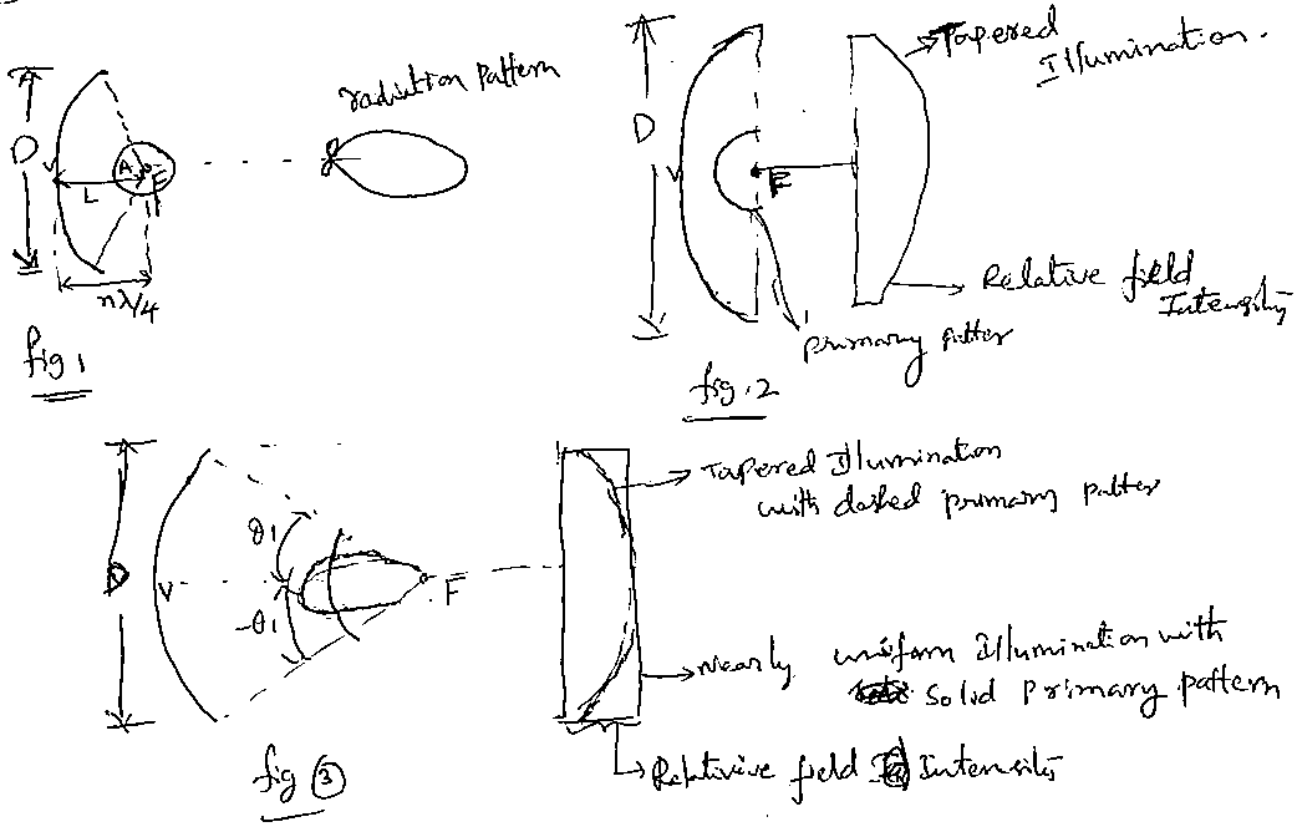 D
V
L
A
F
nλ/4
fig 1
radiation Pattern
D
V
F
Tapered
Illumination.
Relative field
Intensity
primary patter
fig.2
D
V
θ1
-θ1
F
Tapered Illumination
with dashed primary patter
Nearly uniform Illumination with
Solid Primary pattern
Relativive field Intensity
fig 3